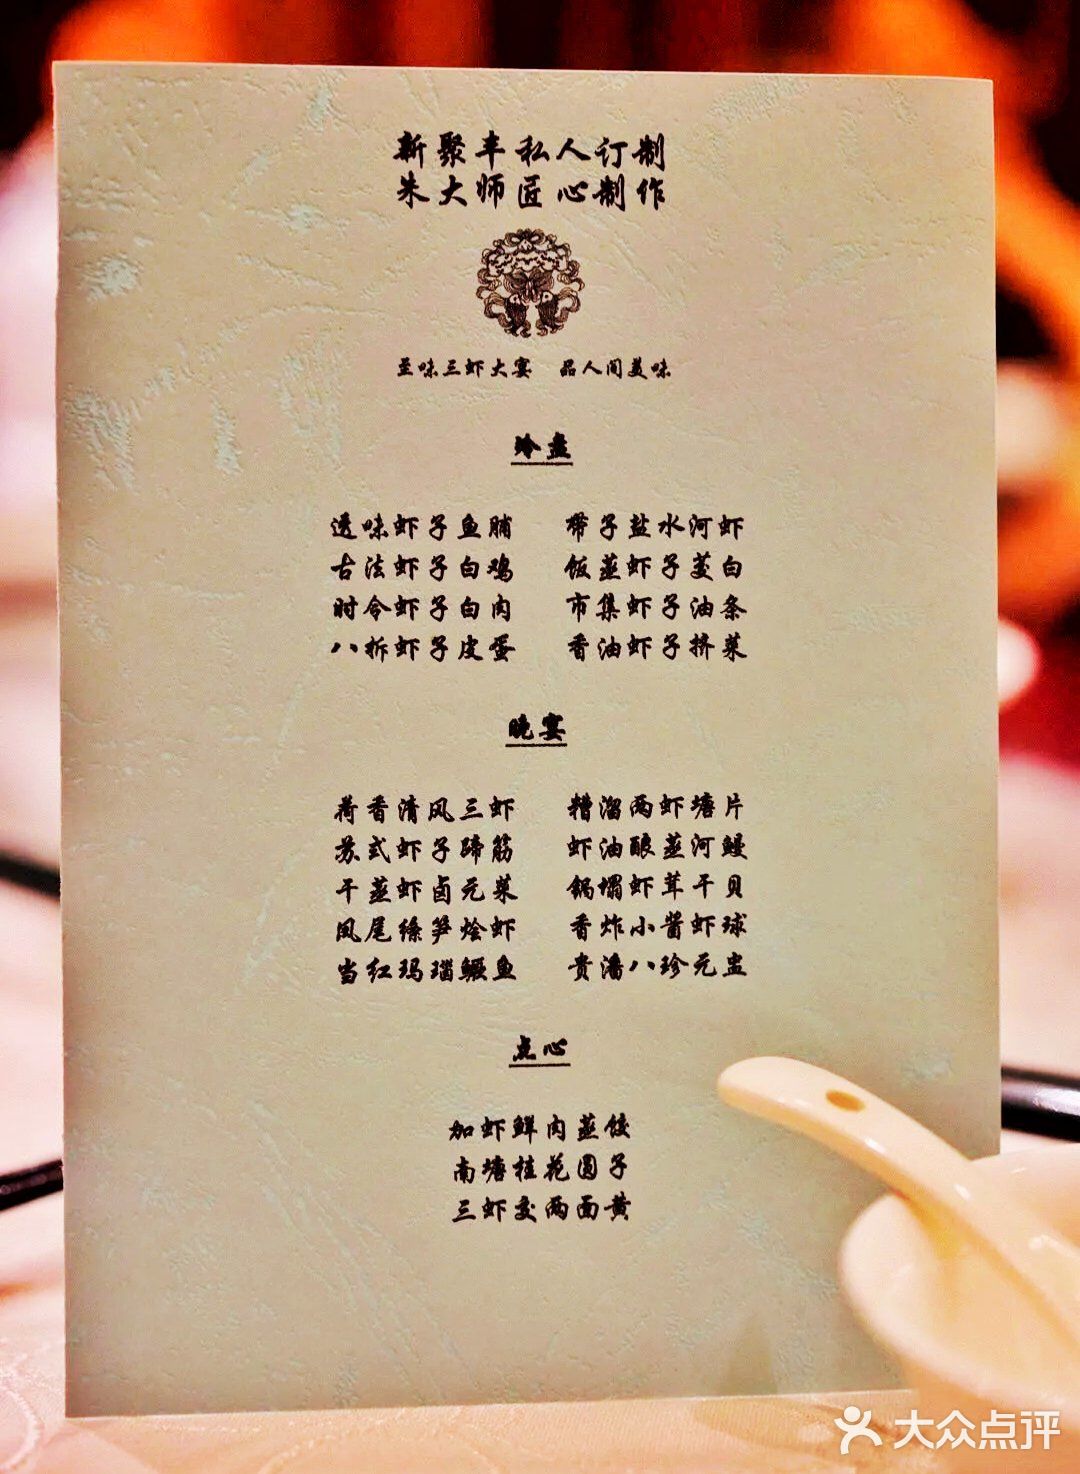 新聚丰私人订制
朱大师匠心制作
至味三虾大宴 品人间美味
冷盘
透味虾子鱼脯 带子盐水河虾
古法虾子白鸡 饭蒸虾子茭白
时令虾子白肉 市集虾子油条
八拆虾子皮蛋 香油虾子挤菜
晚宴
荷香清风三虾 糟溜两虾塘片
苏式虾子蹄筋 虾油酿蒸河鳗
干蒸虾卤元菜 锅塌虾茸干贝
凤尾绦笋烩虾 香炸小酱虾球
当红玛瑙鳜鱼 贵潘八珍元盅
点心
加虾鲜肉蒸饺
南塘桂花圆子
三虾炙两面黄
大众点评